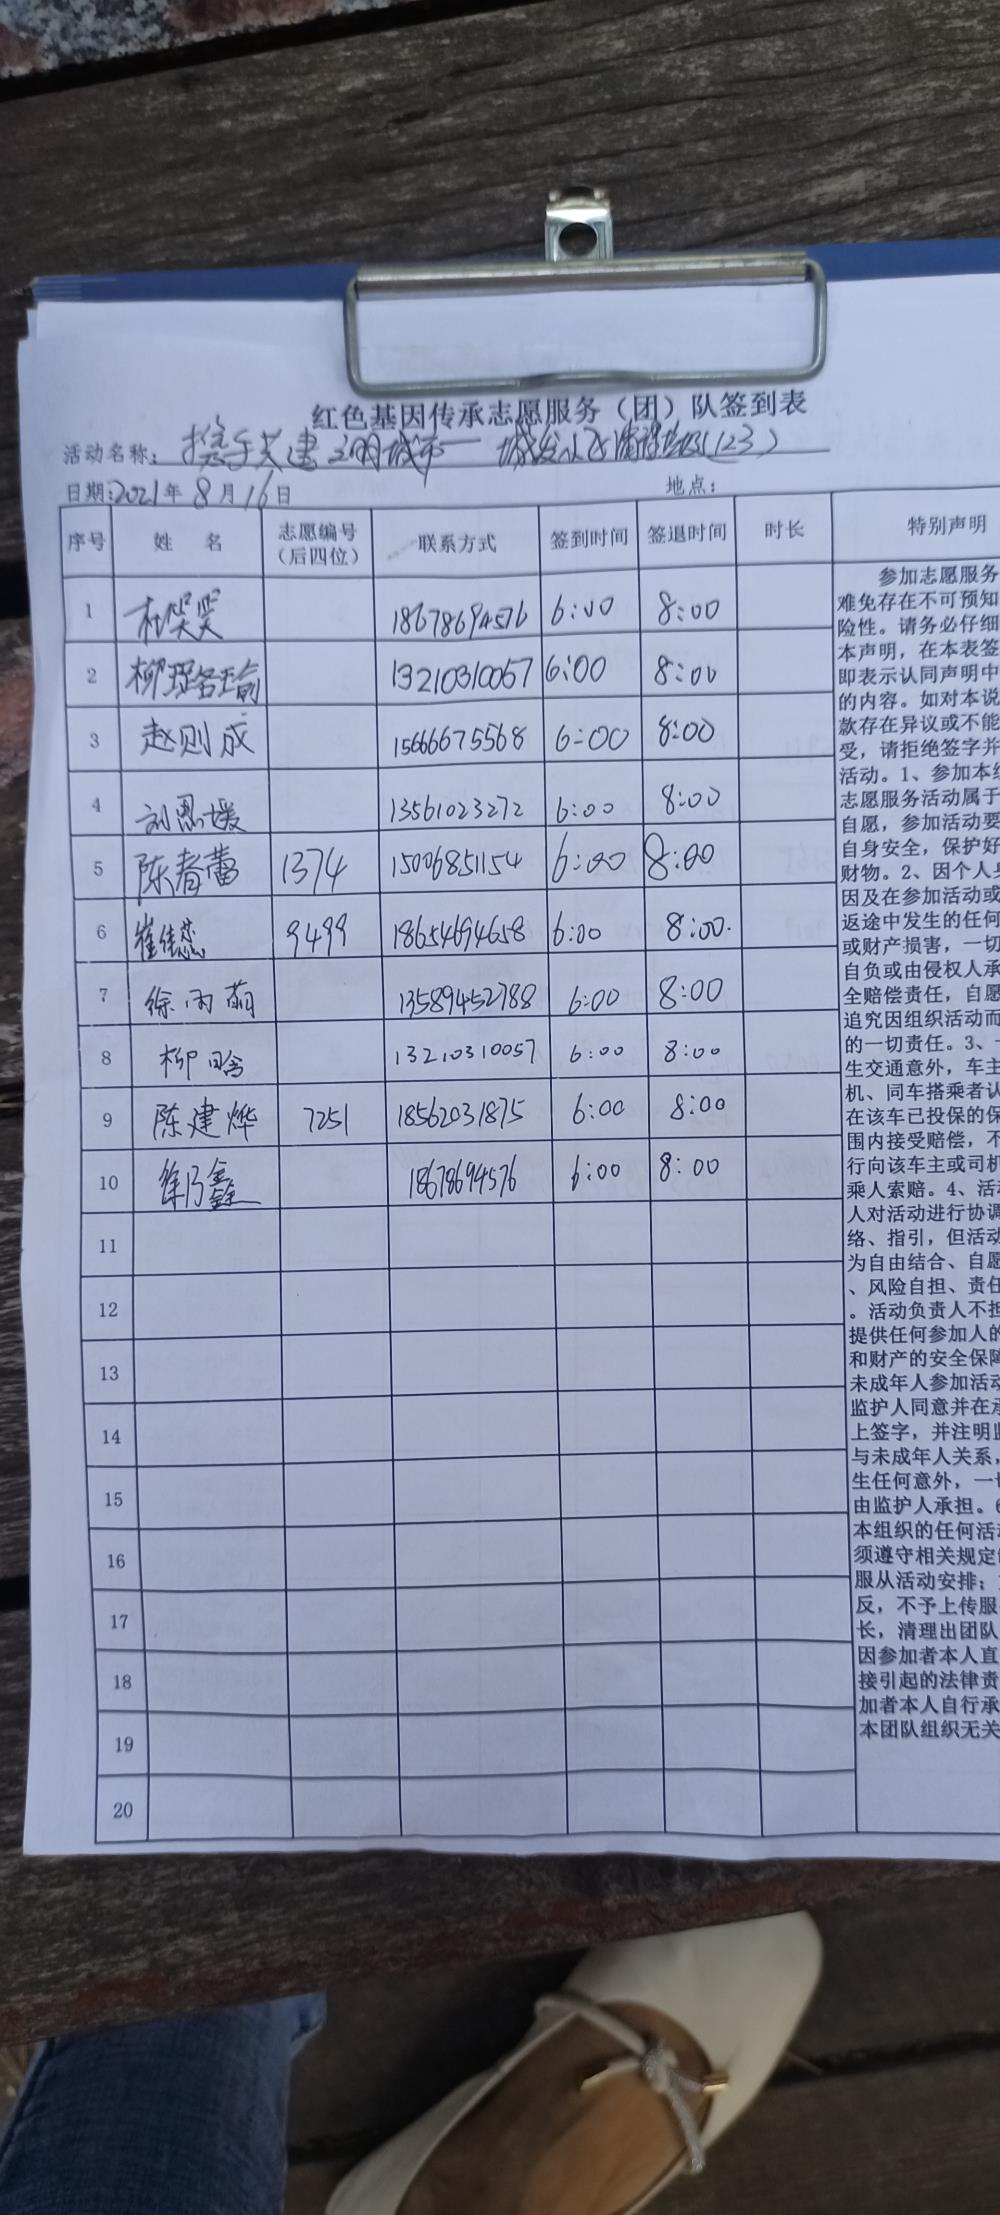 红色基因传承志愿服务（团）队签到表
活动名称：携手共建文明城市——城发 (123)
日期：2021年 8月 16日 地点：
序号 姓 名 志愿编号（后四位） 联系方式 签到时间 签退时间 时长 特别声明
1 杜笑笑 18678694576 6:00 8:00
2 柳 13210310057 6:00 8:00
3 赵则成 15666675568 6:00 8:00
4 刘恩媛 13561023272 6:00 8:00
5 陈春蕾 1374 15006851154 6:00 8:00
6 崔佳蕊 9499 18654694658 6:00 8:00.
7 徐雨萌 13589452788 6:00 8:00
8 柳晗 13210310057 6:00 8:00
9 陈建烨 7251 18562031875 6:00 8:00
10 徐乃鑫 18678694576 6:00 8:00
11
12
13
14
15
16
17
18
19
20
参加志愿服务
难免存在不可预知
险性。请务必仔细
本声明，在本表签
即表示认同声明中
的内容。如对本说
款存在异议或不能
受，请拒绝签字并
活动。1、参加本组
志愿服务活动属于
自愿，参加活动要
自身安全，保护好
财物。2、因个人身
因及在参加活动或
返途中发生的任何
或财产损害，一切
自负或由侵权人承
全赔偿责任，自愿
追究因组织活动而
的一切责任。3、
生交通意外，车主
机、同车搭乘者认
在该车已投保的保
围内接受赔偿，不
行向该车主或司机
乘人索赔。4、活动
人对活动进行协调
络、指引，但活动
为自由结合、自愿
、风险自担、责任
。活动负责人不担
提供任何参加人的
和财产的安全保障
未成年人参加活动
监护人同意并在承
上签字，并注明监
与未成年人关系，
生任何意外，一切
由监护人承担。6
本组织的任何活动
须遵守相关规定
服从活动安排；
反，不予上传服
长，清理出团队
因参加者本人直
接引起的法律责
加者本人自行承
本团队组织无关